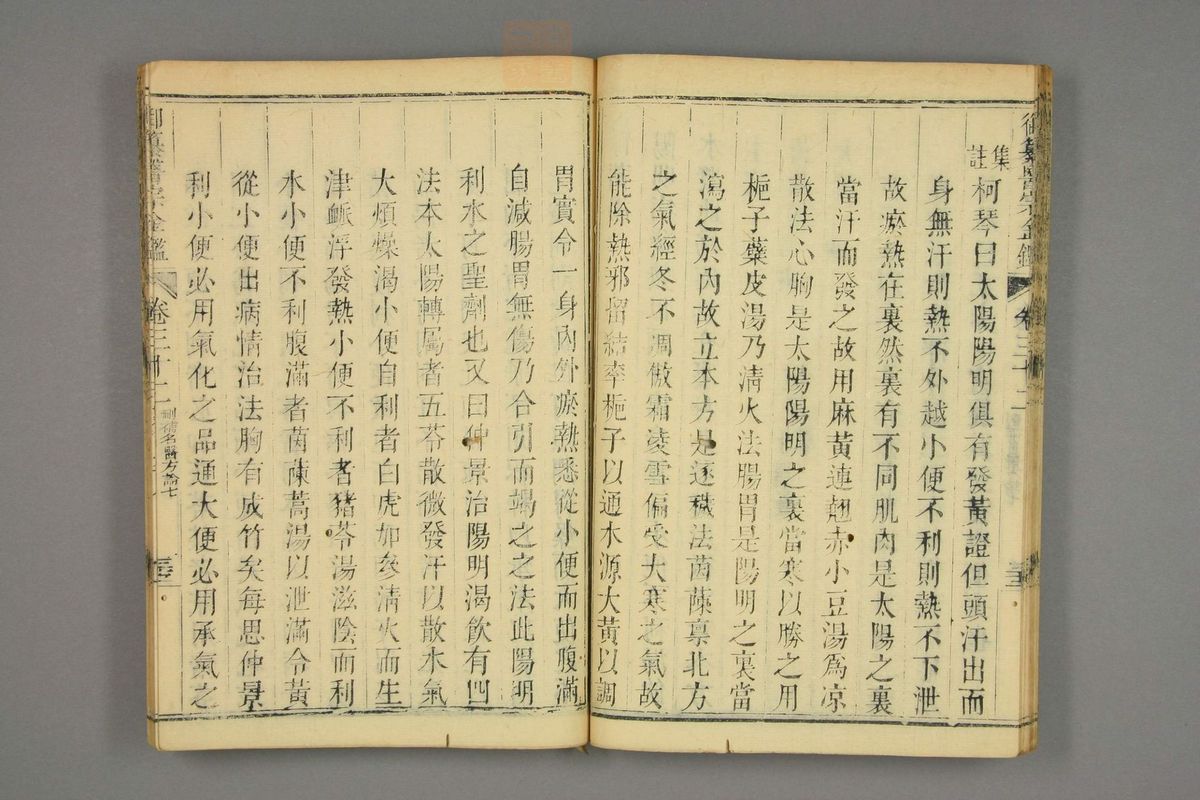 御纂醫宗金鑑 卷三十二
集註
柯琴曰太陽陽明俱有發黃證但頭汗出而
身無汗則熱不外越小便不利則熱不下泄
故瘀熱在裏然裏有不同肌肉是太陽之裏
當汗而發之故用麻黃連翹赤小豆湯爲凉
散法心胸是太陽陽明之裏當寒以勝之用
梔子蘗皮湯乃清火法腸胃是陽明之裏當
瀉之於內故立本方是逐穢法茵蔯稟北方
之氣經冬不凋傲霜凌雪偏受大寒之氣故
能除熱邪留結率梔子以通水源大黃以調
胃實令一身內外瘀熱悉從小便而出腹滿
自減腸胃無傷乃合引而竭之之法此陽明
利水之聖劑也又曰仲景治陽明渴飲有四
法本太陽轉屬者五苓散微發汗以散水氣
大煩燥渴小便自利者白虎加參清火而生
津脈浮發熱小便不利者豬苓湯滋陰而利
水小便不利腹滿者茵蔯蒿湯以泄滿令黃
從小便出病情治法胸有成竹矣每思仲景
利小便必用氣化之品通大便必用承氣之
御纂醫宗金鑑 卷三十二 刪補名醫方論七